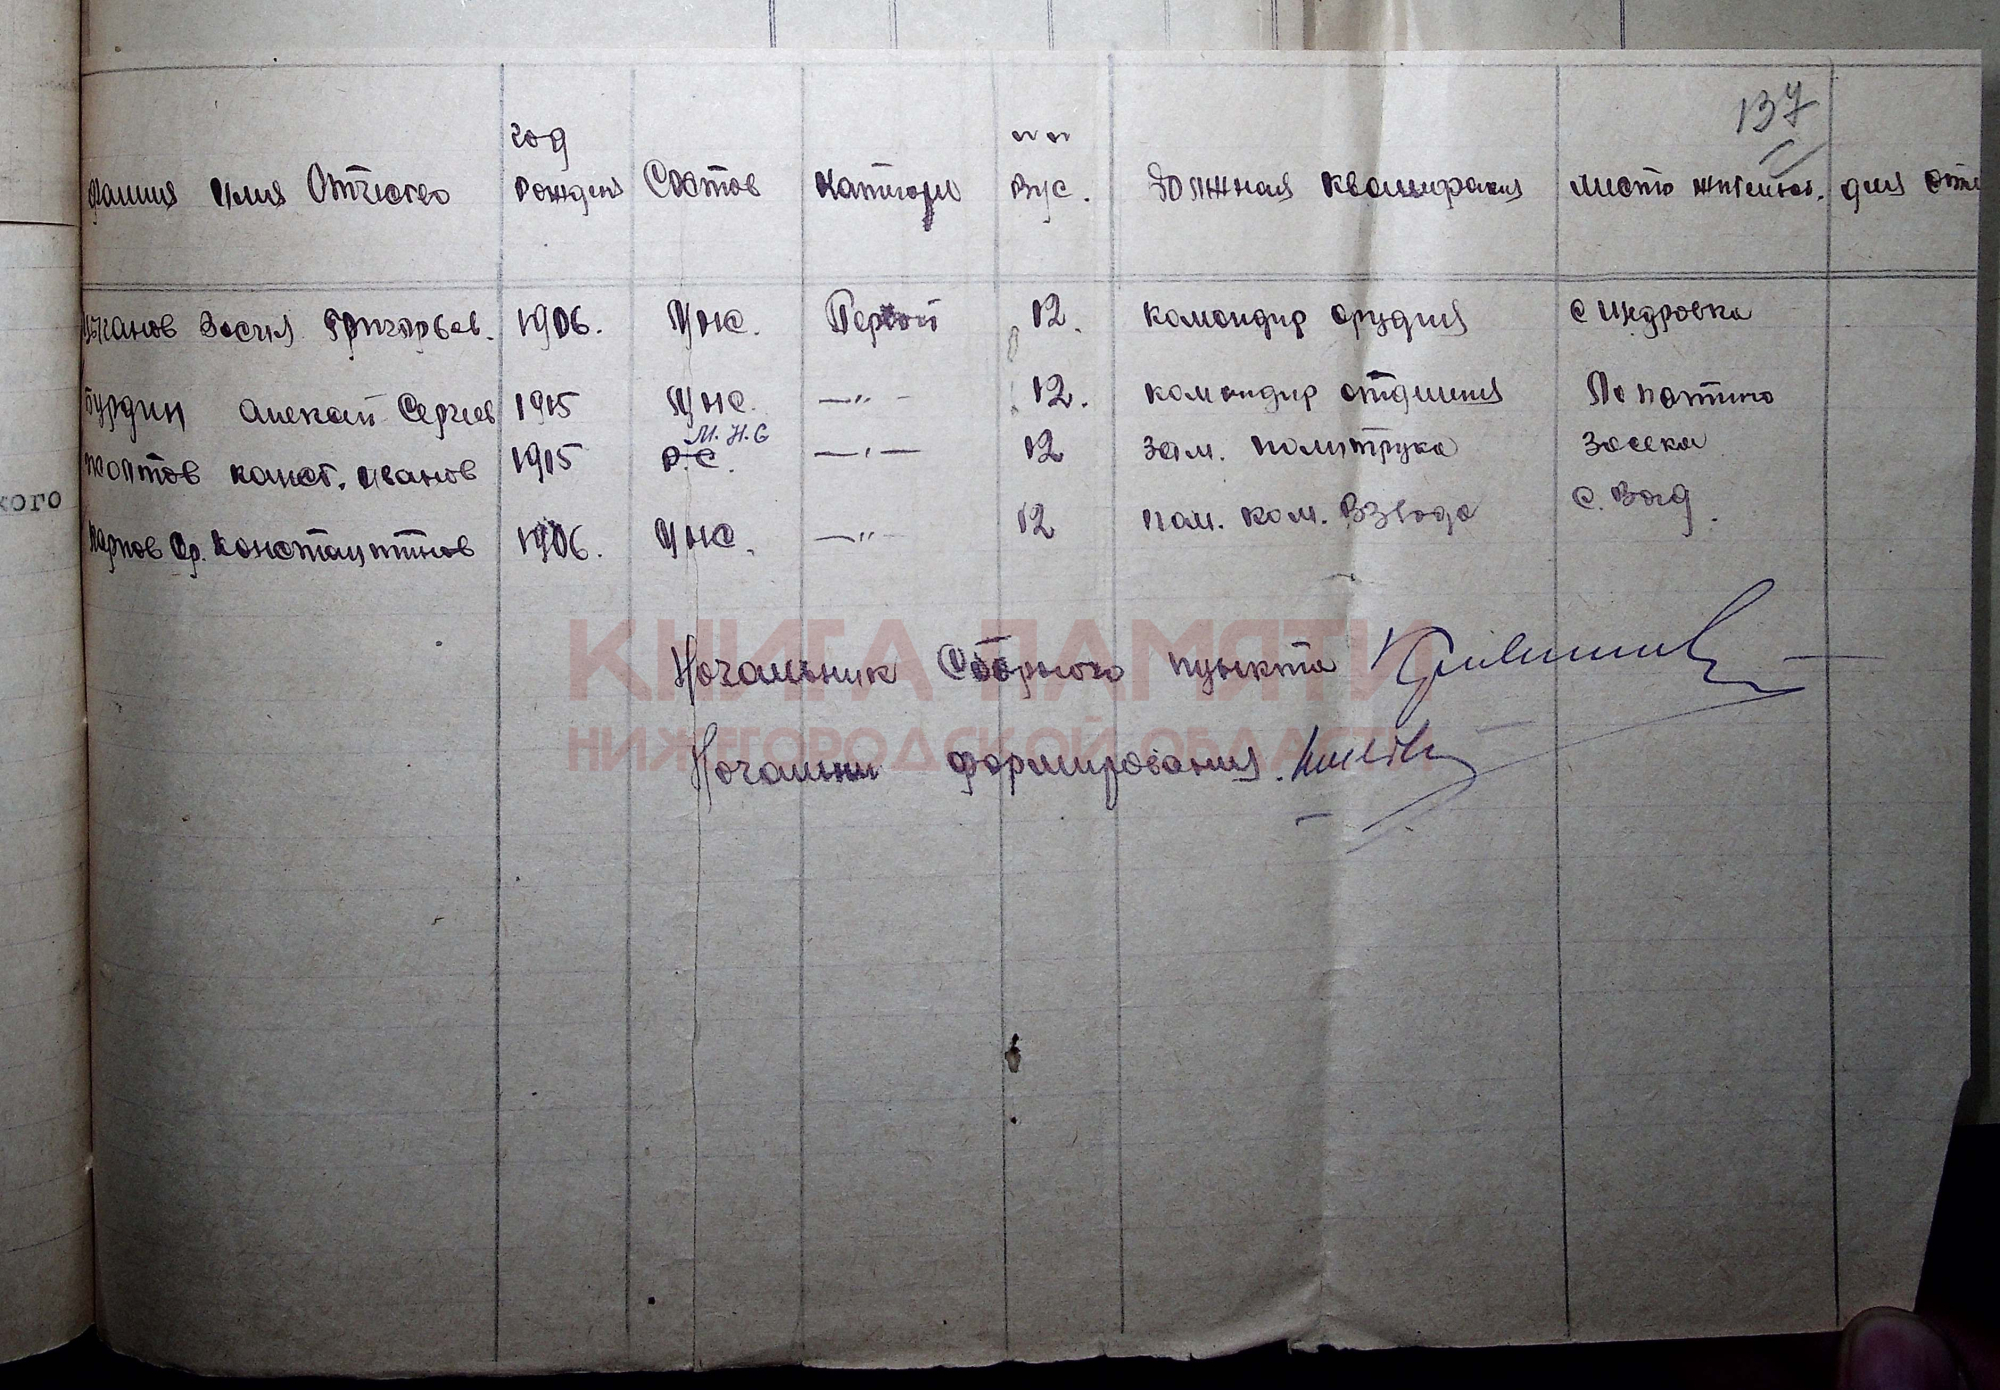 137
год
Фамилия Имя Отчество Рожден Состов Категори ВУС. Должная Квалификация место жительст. для отм
Цыганов Васил Григорьев. 1906. Мнс. Первой 12. командир орудия с Щедровка
Бурдин Алексей Сергеев 1915 Мнс. —"— 12. командир отделения Лопатино
М.Н.С
Желтов Конст. Иванов 1915 Р.С. —"— 12 зам. политрука Засека
Карпов Ф. Константинов 1906. Мнс. —"— 12 пом. ком. Взвода с. Вад.
кого
Начальник Сборного пункта
Начальни формирования.
КНИГА ПАМЯТИ
НИЖЕГОРОДСКОЙ ОБЛАСТИ